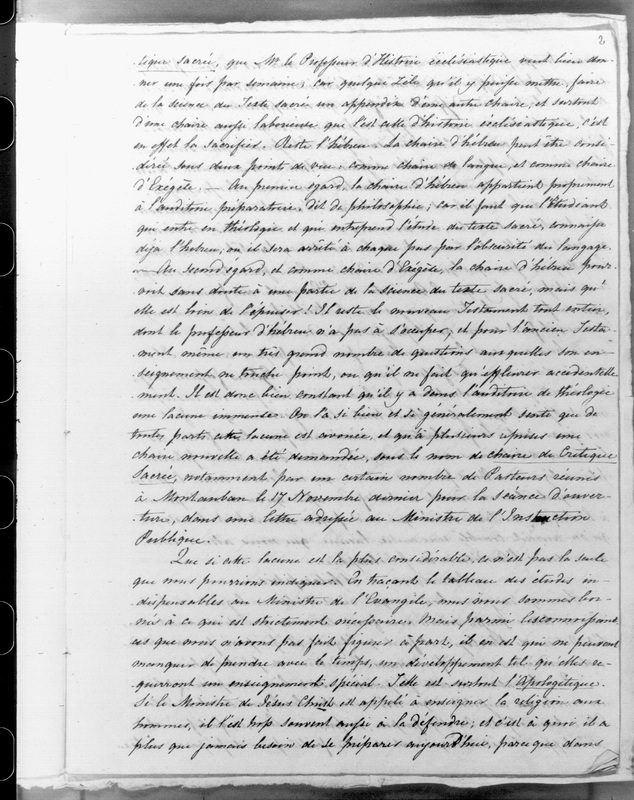 2
tique sacrée, que Mr. le Professeur d'Histoire écclésiastique veut bien don-
ner une fois par semaine; car quelque zèle qu'il y puisse mettre, faire
de la science du Texte sacré un appendix d'une autre chaire, et surtout
d'une chaire aussi laborieuse que l'est celle d'histoire écclésiastique, c'est
en effet la sacrifier. Reste l'hébreu. La chaire d'hébreu peut être consi-
dérée sous deux points de vue: comme chaire de langue, et comme chaire
d'Exégèse. — Au premier égard, la chaire d'hébreu appartient proprement
à l'auditoire préparatoire, dit de philosophie; car il faut que l'Etudiant
qui entre en théologie et qui entreprend l'étude du texte sacré, connaisse
déja l'hebreu, ou il sera arrêté à chaque pas par l'obscurité du langage.
— Au second égard, et comme chaire d'Exégèse, la chaire d'hébreu pour-
voit sans doute à une partie de la science du texte sacré, mais qu'
elle est loin de l'épuiser! Il reste le nouveau Testament tout entier,
dont le professeur d'hébreu n'a pas à s'occuper, et pour l'ancien Testa-
ment même un très grand nombre de questions auxquelles son en-
seignement ne touche point, ou qu'il ne fait qu'effleurer accidentelle-
ment. Il est donc bien constant qu'il y a dans l'auditoire de théologie
une lacune immense. On l'a si bien et si généralement senti que de
toutes parts cette lacune est avouée, et qu'à plusieurs reprises une
chaire nouvelle a été demandée, sous le nom de chaire de Critique
Sacrée, notamment par un certain nombre de Pasteurs réunis
à Montauban le 17 Novembre dernier pour la séance d'ouver-
ture, dans une lettre adressée au Ministre de l'Instruction
Publique.
Que si cette lacune est la plus considérable, ce n'est pas la seule
que nous pourrions indiquer. En traçant le tableau des études in-
dispensables au Ministre de l'Evangile, nous nous sommes bor-
nés à ce qui est strictement nécessaire. Mais parmi les connaissan-
ces que nous n'avons pas fait figurer à part, il en est qui ne peuvent
manquer de prendre avec le temps, un développement tel qu'elles re-
querront un enseignement spécial. Telle est surtout l'Apologétique.
Si le Ministre de Jésus Christ est appelé à enseigner la religion aux
hommes, il l'est trop souvent aussi à la défendre; et c'est à quoi il a
plus que jamais besoin de se préparer aujourd'hui, parce que dans